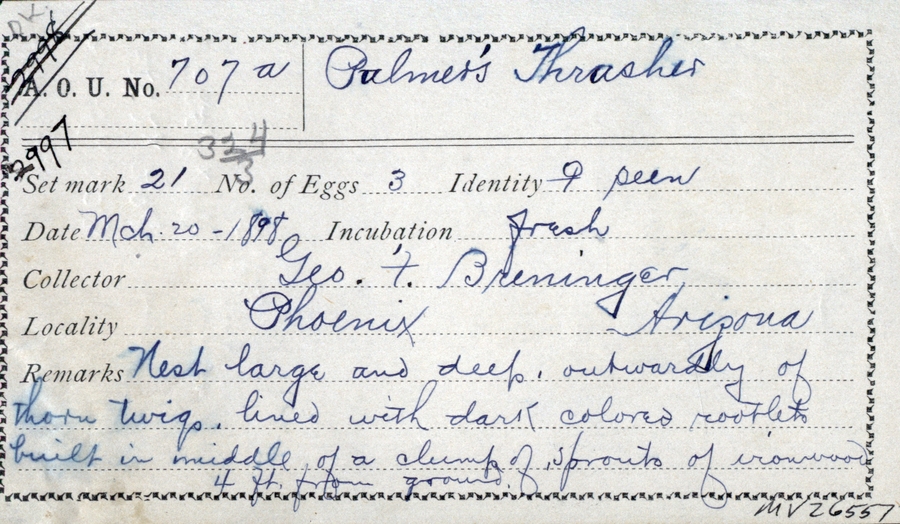 DK.
2998
A. O. U. No. 707a Palmer's Thrasher
2997
33/4
3
Set mark 21 No. of Eggs 3 Identity ♀ seen
Date Mch. 20 - 1898 Incubation fresh
Collector Geo. F. Breninger
Locality Phoenix Arizona
Remarks Nest large and deep, outwardly of
thorn twigs, lined with dark colored rootlets
built in middle of a clump of sprouts of ironwood
4 ft. from ground.
MV26557